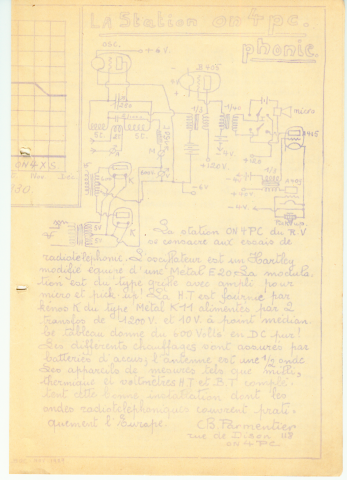 LA Station ON4PC.
phonie.
OSC.
+4V.
B405
micro
+120V
-4V
+12V
-4V.
ON4XS.
Nov. Déc.
La station ON4PC du R.V
se consacre aux essais de
radiotéléphonie. L'oscillateur est un Hartley
modifié équipé d'une Metal E20. La modula-
tion est du type grille avec ampli pour
micro et pick-up! La H.T est fournie par
kenos K du type Metal K11 alimentés par 2
transfos de 1200 V. et 10 V. à point médian
Le tableau donne du 600 Volts en DC pur!
Les différents chauffages sont assurés par
batteries d'accus, l'antenne est une 1/2 onde
Les appareils de mesures tels que milli,
thermique et voltmètres HT et B.T complè-
tent cette bonne installation dont les
ondes radiotéléphoniques couvrent prati-
quement l'Europe.
CB Parmentier
rue de Dison 118
ON4PC